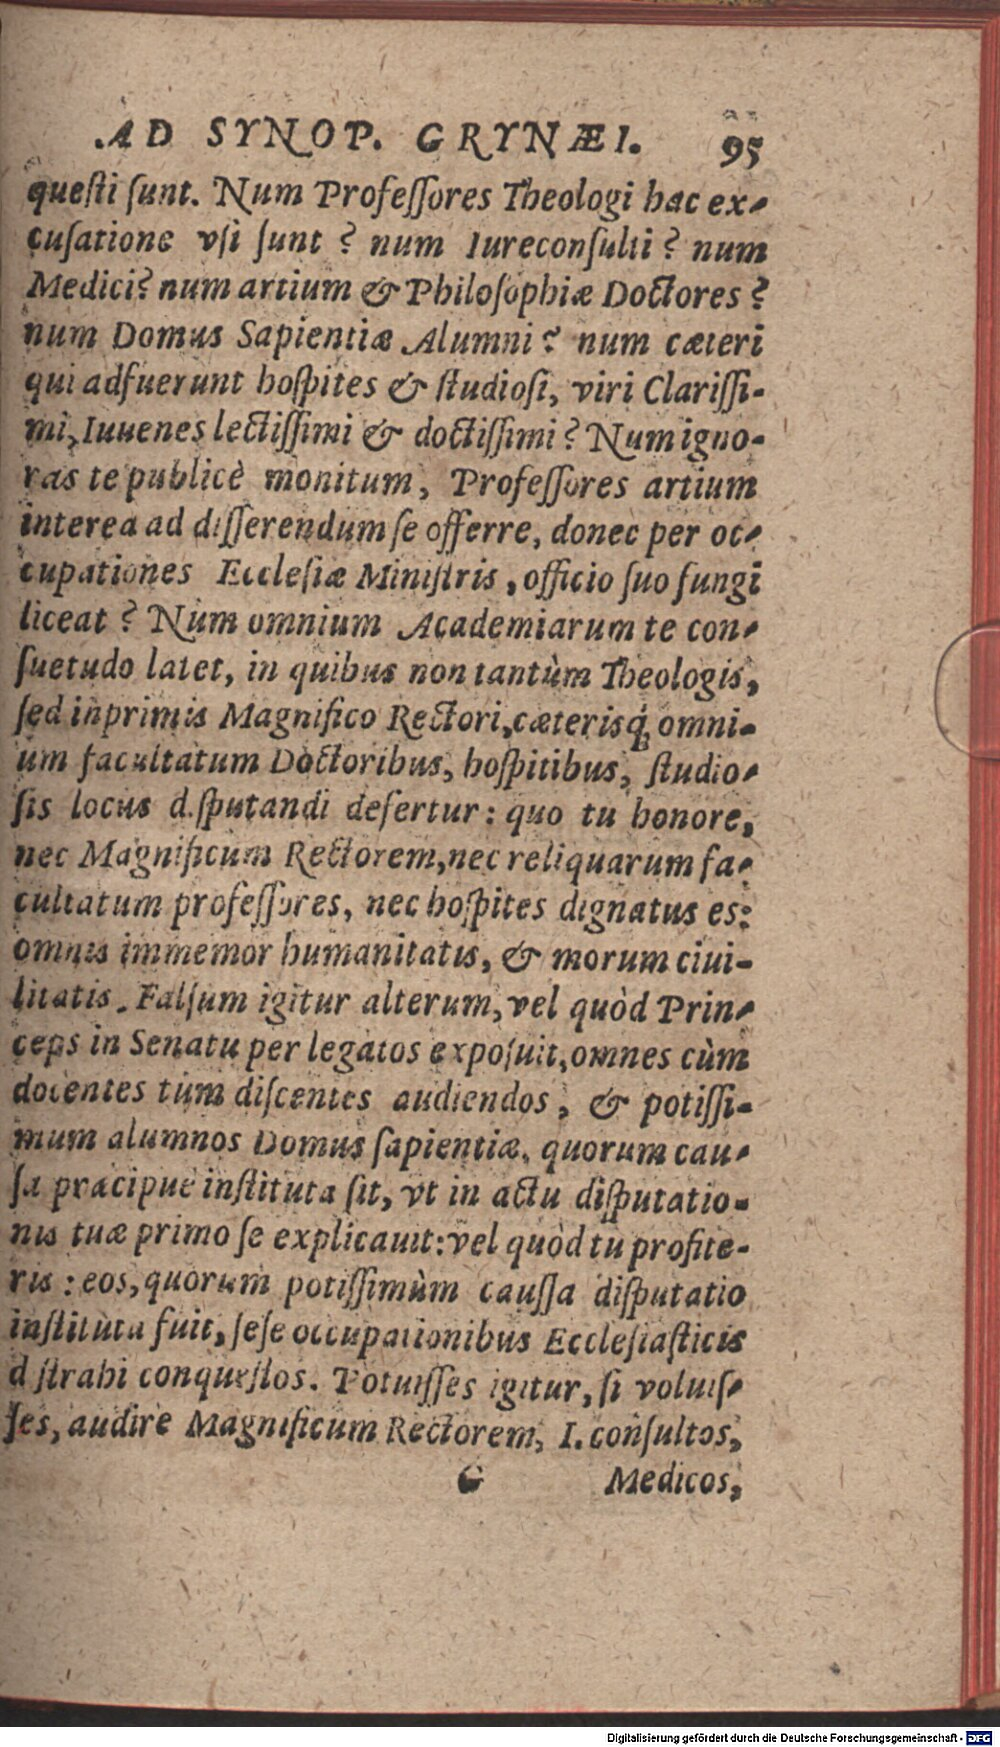 AD SYNOP. GRYNÆI. 95
questi sunt. Num Professores Theologi hac ex-
cusatione vsi sunt? num Iureconsulti? num
Medici? num artium & Philosophiæ Doctores?
num Domus Sapientiæ Alumni? num cæteri
qui adfuerunt hospites & studiosi, viri Clarissi-
mi, Iuuenes lectissimi & doctissimi? Num igno-
ras te publicè monitum, Professores artium
interea ad disserendum se offerre, donec per oc-
cupationes Ecclesiæ Ministris, officio suo fungi
liceat? Num omnium Academiarum te con-
suetudo latet, in quibus non tantùm Theologis,
sed inprimis Magnifico Rectori, cæterisq́; omni-
um facultatum Doctoribus, hospitibus, studio-
sis locus disputandi defertur: quo tu honore,
nec Magnificum Rectorem, nec reliquarum fa-
cultatum professores, nec hospites dignatus es:
omnis immemor humanitatis, & morum ciui-
litatis. Falsum igitur alterum, vel quòd Prin-
ceps in Senatu per legatos exposuit, omnes cùm
docentes tùm discentes audiendos, & potissi-
mum alumnos Domus sapientiæ, quorum cau-
sa præcipuè instituta sit, vt in actu disputatio-
nis tuæ primo se explicauit: vel quòd tu profite-
ris: eos, quorum potissimùm caussa disputatio
instituta fuit, sese occupationibus Ecclesiasticis
distrahi conquestos. Potuisses igitur, si voluis-
ses, audire Magnificum Rectorem, I. consultos,
G Medicos,
Digitalisierung gefördert durch die Deutsche Forschungsgemeinschaft - DFG